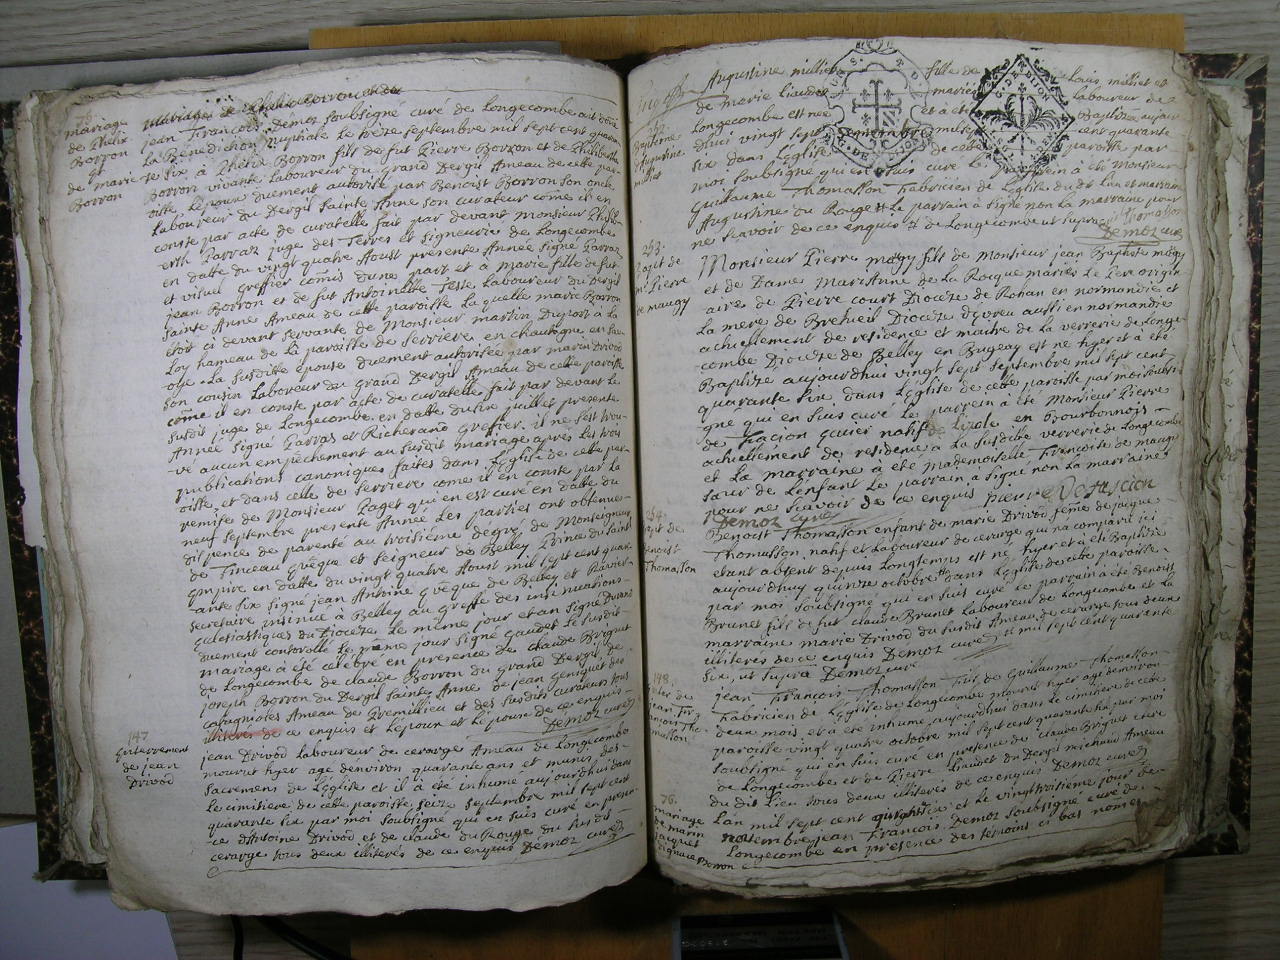 mariage
de Philix
Borron
et
de marie
Borron
jean François Démoz soubsigné curé de Longecombe ait donné
la Bénédiction nuptiale le treze septembre mil sept cent quaran
te six à Phélix Borron fils de fut Pierre Borron et de Philiberte
Borron vivante laboureur du grand Dergil Ameau de cette par-
oisse, l'époux duement autorisé par Benoist Borron son oncle
laboureur du Dergil Sainte Anne son curateur come il en
conste par acte de curatelle fait par devant Monsieur Phili-
erth Parraz juge des Terres et signeurie de Longecombe
en datte du vingt quatre Aoust présente Année signé Parraz
et visuel greffier comis d'une part et à Marie fille de fut
jean Borron et de fut Antoinette Teste laboureur du Dergil
Sainte Anne Ameau de cette paroisse la quelle marie Borron
étoit ci devant servante de Monsieur martin Duport à la
Loy hameau de la paroisse de Serriere en chautagne en Sav
oye. La susditte épouse duement autorisée par marin Drivod
son cousin Laboreur du grand Dergil Ameau de cette paroisse
come il en conste par acte de curatelle fait par devant le
susdit juge de Longecombe en datte du six juillet presente
Année signé Parras et Richerand Greffier. il ne s'est trou-
vé aucun empêchement au susdit mariage après les trois
publications canoniques faites dans l'église de cette par-
oisse, et dans celle de Serriere come il en conste par la
remise de Monsieur Paget qui en est curé en datte du
neuf septembre presente Année. Les parties ont obtenues
dispences de parenté au troisième dégré de Monseigneur
de Tinceau evêque et seigneur de Belley Prince du saint
Empire en datte du vingt quatre Aoust mil sept cent quar
ante six signé jean Antoine evêque de Belley et Ravier
secretaire insinué à Belley au greffe des insinuations
eclesiastiques du Diocèze le même jour et an signé
duement controllé le même jour signé Gaudet le susdit
mariage à été célébré en presence de claude Briguet
de Longecombe de claude Borron du grand Dergil de
joseph Borron du Dergil Sainte Anne de jean
Ameau de Premillieu et des susdits curateurs tous
illiterés de ce enquis et l'époux et l'épouse de ce enquis
Démoz curé
147
Enterrement
de jean
Drivod
jean Drivod laboureur de cerarge Ameau de Longecombe
mourut hyer agé d'environ quarante ans et munis des
sacremens de l'église et il à été inhumé aujourd'hui dans
le cimitière de cette paroisse, seize septembre mil sept cent
quarante six par moi soubsigné qui en suis curé en presen-
ce d'Antoine Drivod et de claude du Rouge du susdit
cerarge tous deux illiterés de ce enquis Démoz curé
Baptême
d'Augustine
milliet
Augustine milliet fille de Louis milliet et
de marie Liaudet mariés laboureur de
Longecombe est née et à été Baptizée aujour
d'hui vingt sept septembre mil sept cent quarante
six dans l'église de cette paroisse par
moi soubsigné qui en suis curé le parrain à été Monsieur
Guilaume Thomasson Fabricien de l'église du dit lieu et marraine
Augustine du Rouge le parrain à signé non la marraine pour
ne scavoir de ce enquis de Longecombe ut supra Thomasson
Démoz curé
253.
Bapt de
Mr Pierre
de maugy
Monsieur Pierre mogy fils de Monsieur jean Baptiste mogy
et de Dame Marianne de la Rocque mariés le Pere origin
aire de Pierre court Diocèze de Rohan en normandie et
la mere de Breheuil Diocèze d'evreu aussi en normandie
actuellement de residence et maitre de la verrerie de Longe-
combe Diocèze de Belley en Bugeay est né hyer et à été
Baptizé aujourd'hui vingt sept septembre mil sept cent
quarante six, dans l'église de cette paroisse par moi soubsi-
gné qui en suis curé le parrein à été Monsieur Pierre
de natif de Lizole en Bourbonnois
actuellement de residence à la susditte verrerie de Longecombe
et la marraine à été mademoiselle Françoise de maugi
sœur de l'enfant le parrain à signé non la marraine
pour ne scavoir de ce enquis pierre
Démoz curé
254.
Bapt de
Benoist
Thomasson
Benoist Thomasson enfant de marie Drivod féme de jacque
Thomasson natif et laboureur de cerarge qui na comparu ici
etant absent depuis longtemps est né hyer et à été Baptizé
aujourd'huy quinze octobre dans l'église de cette paroisse
par moi soubsigné qui en suis curé le parrain à été Benoist
Brunet fils de fut claude Brunet laboureur de Longecombe et la
marraine marie Drivod du susdit Ameau de cerarge tous deux
illiterés de ce enquis Démoz curé et mil sept cent quarente
six, ut supra Démoz curé
148
jean François Thomasson fils de Guillaume Thomasson
Fabricien de l'église de Longecombe mourut hyer agé d'environ
deux mois, et à été inhumé aujourd'hui dans le cimitière de cette
paroisse vingt quatre octobre mil sept cent quarante six par moi
soubsigné qui en suis curé en presence de claude Briguet clerc
de Longecombe et de Pierre Liaudet du Dergil michaud Ameau
du dit lieu tous deux illiterés de ce enquis Démoz curé
76.
mariage
de marin
jacquet
Borron
L'an mil sept cent quarante six et le vingt troisieme jour de
novembre jean François Démoz soubsigné curé de
Longecombe en presence des témoins ci bas només